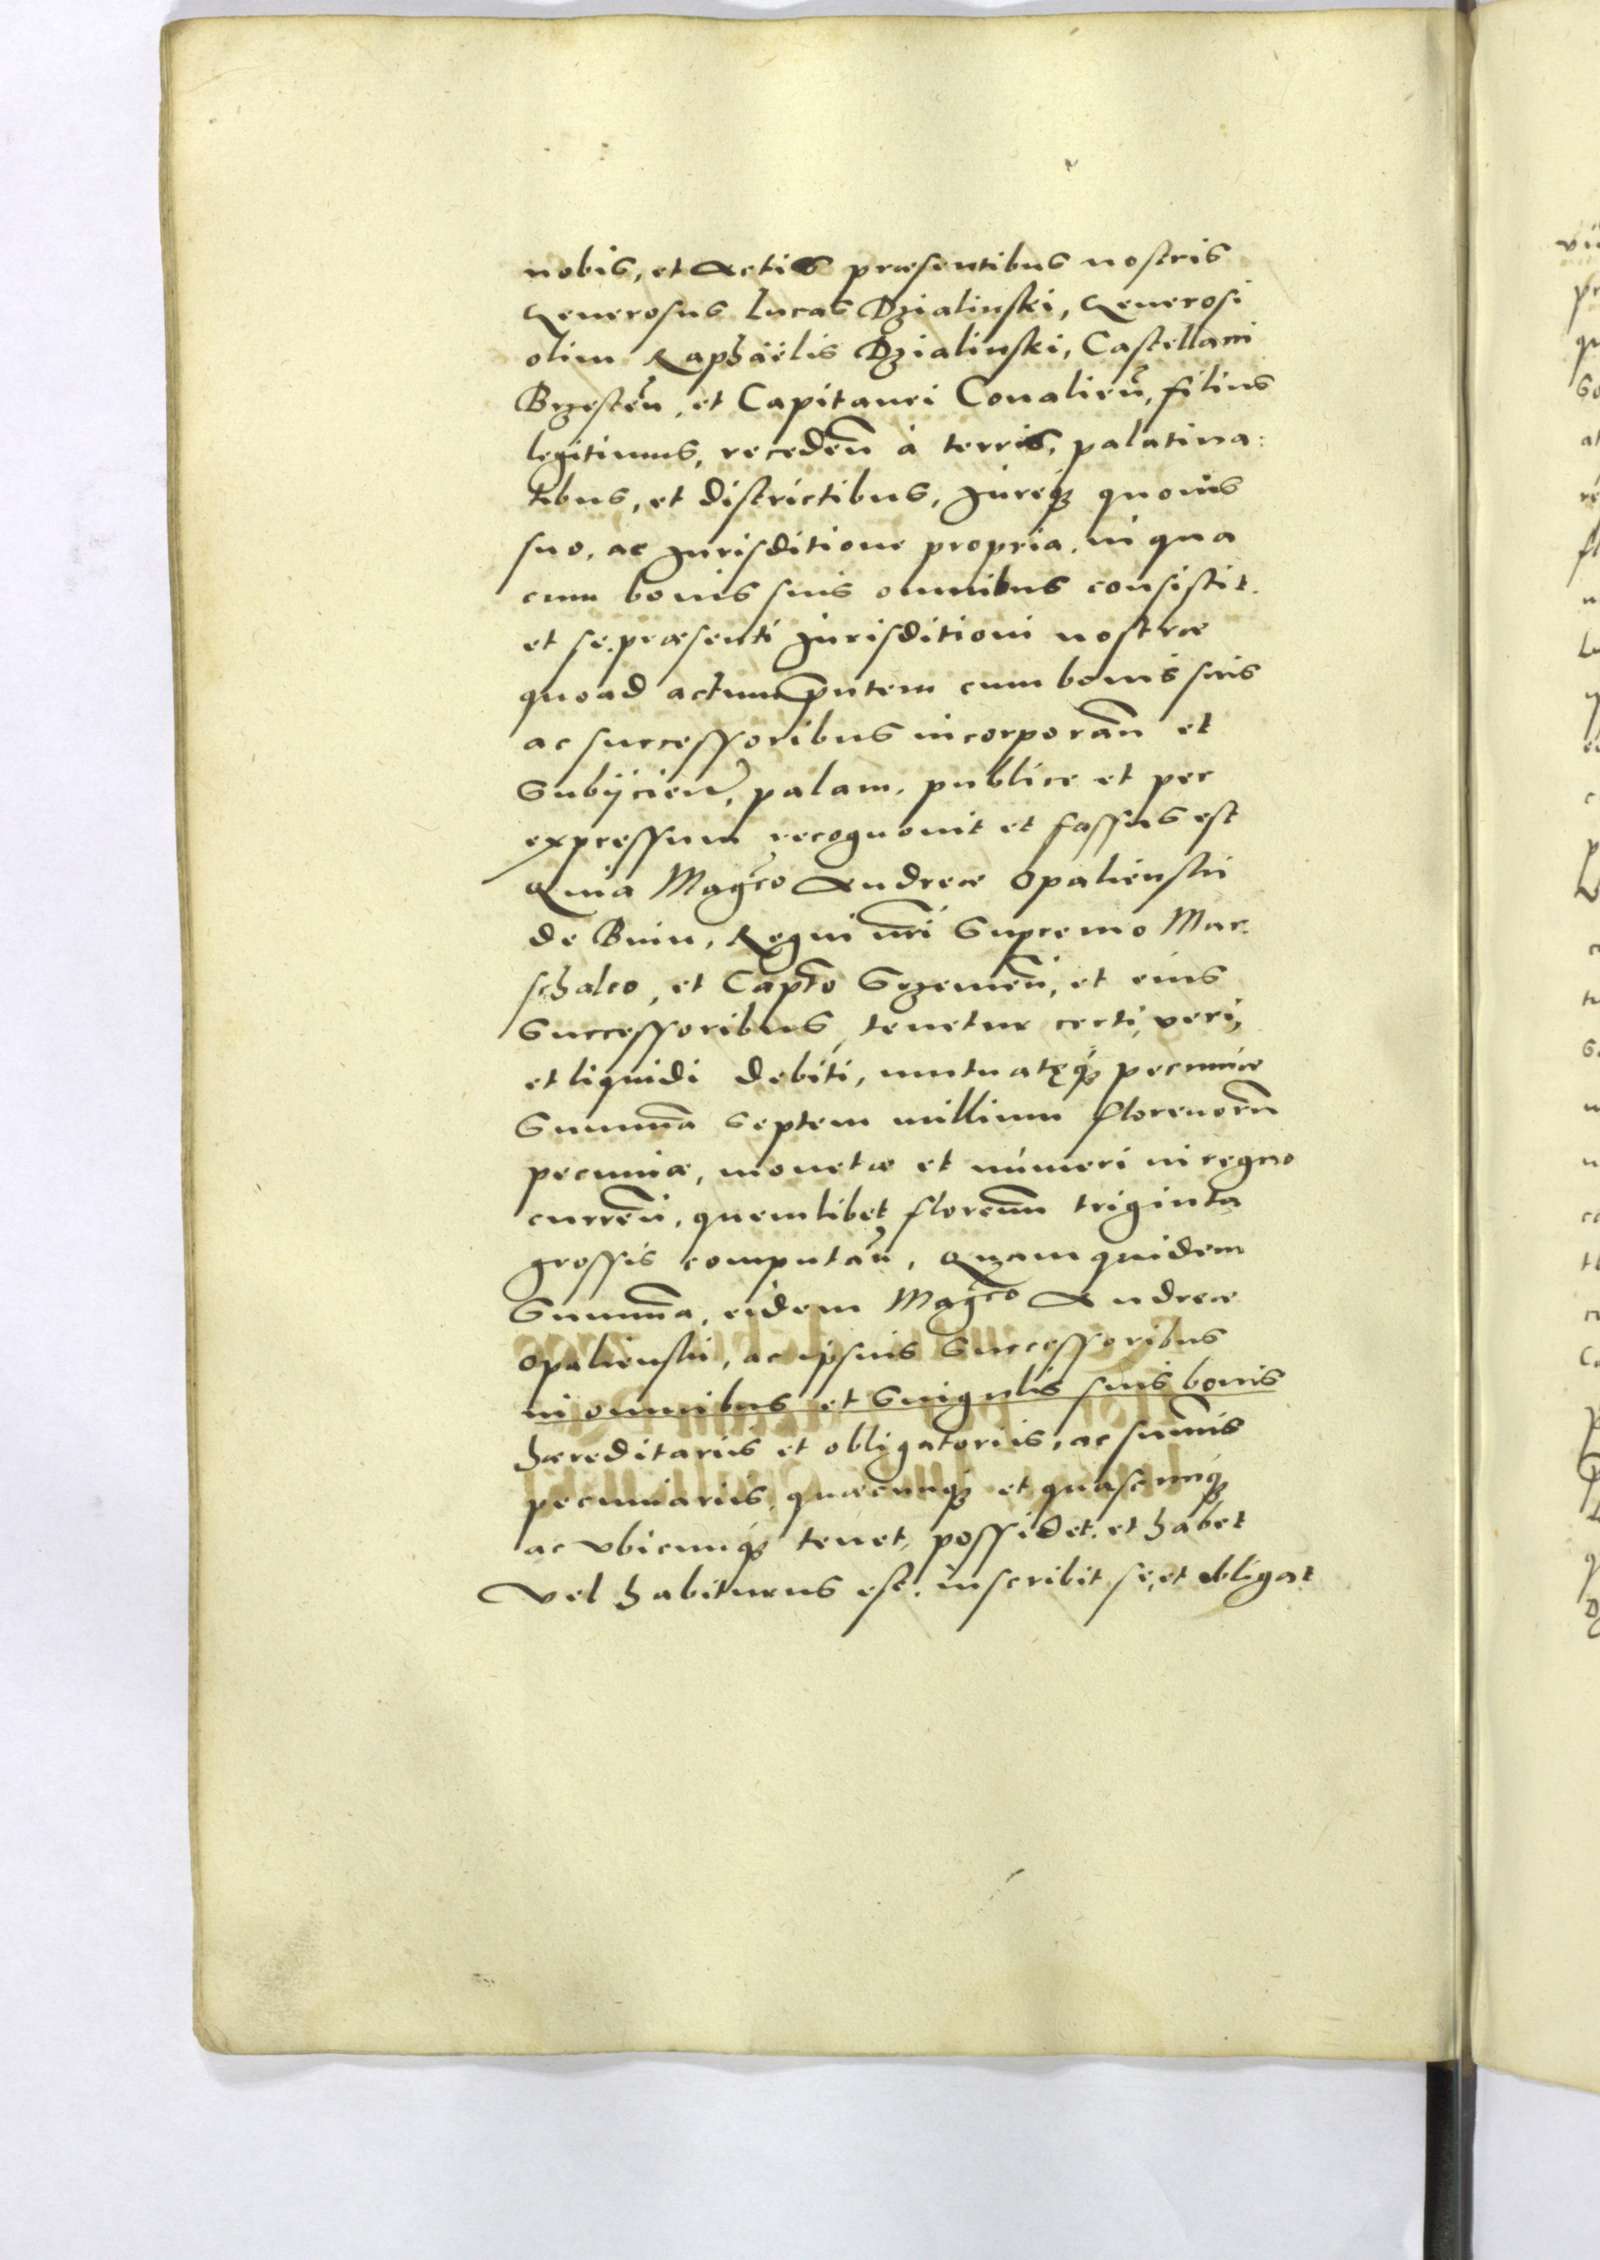 nobis, et Actis præsentibus nostris
Generosus Lucas Dzialinski, Generosi
olim Raphaëlis Dzialinski, Castellani
Brzesteñ, et Capitanei Conalieñ, filius
legitimus, recedeñ à terris, palatina:
tibus, et districtibus, Jureq3 quouis
suo, ac Jurisditione propria, in qua
cum bonis suis omnibus consistit.
et se præsenti Jurisditioni nostræ
quoad actum pñtem cum bonis suis
ac successoribus incorporañ et
Subijcieñ, palam, publice et per
expressum recognouit et fassus est
Quia Magco Andreæ Opalienski
de Bnin, Regni nri Supremo Mar:
schalco, et Capto Srzemeñ, et eius
Successoribus, tenetur certi, veri,
et liquidi debiti, mutuatęq3 pecuniæ
Summa Septem millium florenorũ
pecuniæ, monetæ et numeri in regno
curreñ, quemlibet floreñum triginta
grossis computañ, Quam quidem
Summã, eidem Magco Andreæ
Opalienski, ac ipsius Successoribus
in omnibus et Singulis suis bonis
hæreditariis et obligatoriis, ac sum̃is
pecuniariis, quæcunq3 et quascunq3
ac vbicunq3 tenet, possidet, et habet
vel habiturus est, inscribit se, et obligat